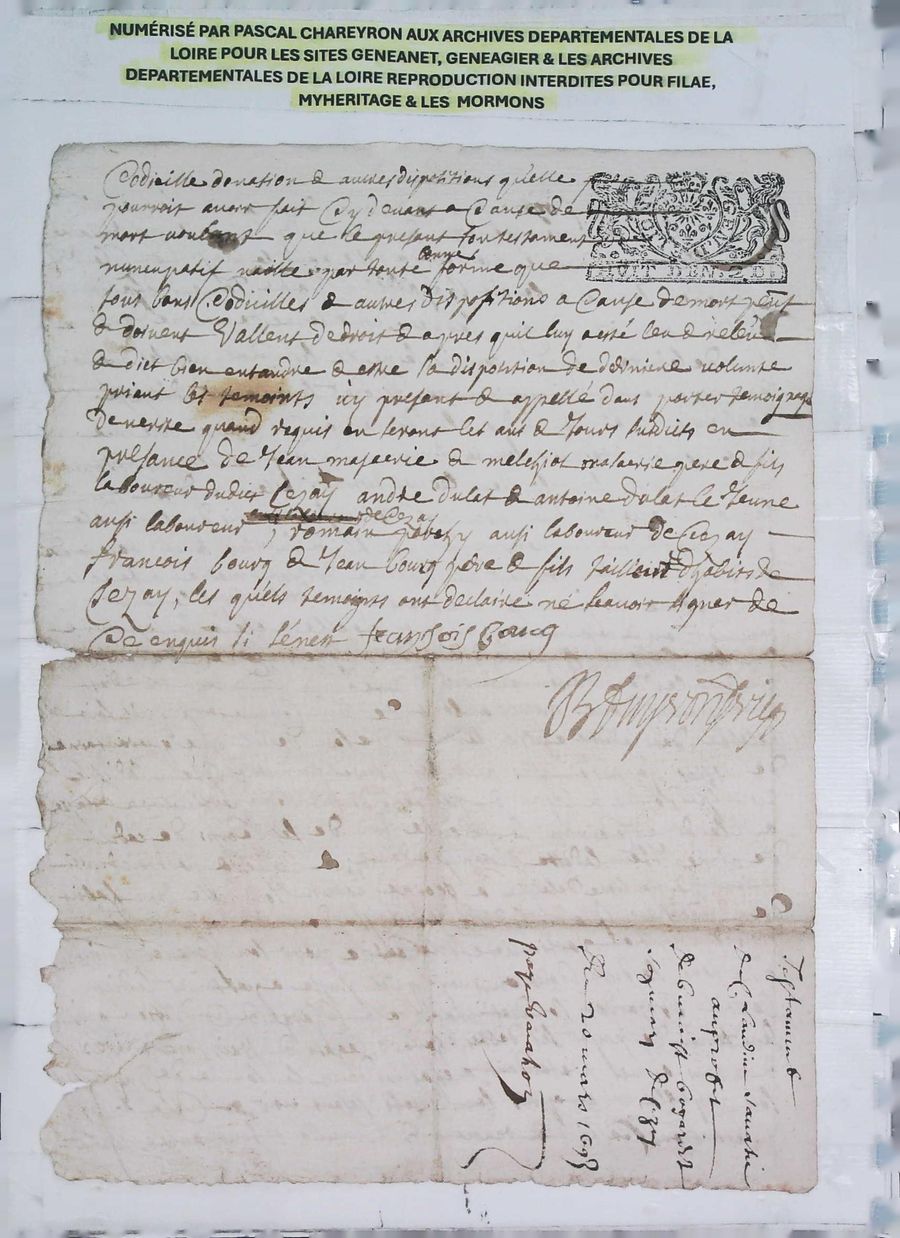 NUMÉRISÉ PAR PASCAL CHAREYRON AUX ARCHIVES DEPARTEMENTALES DE LA
LOIRE POUR LES SITES GENEANET, GENEAGIER & LES ARCHIVES
DEPARTEMENTALES DE LA LOIRE REPRODUCTION INTERDITES POUR FILAE,
MYHERITAGE & LES MORMONS
Codicille donation & autres dispositions qu'elle
pourroit avoir fait Cy devant a Cause de
mort voulant que le présant son testament
nuncupatif vaille par toute forme que
HUIT DEN
tous bons Codicilles & autres dispositions a Cause de mort peut
& doivent Vallent de droit & apres quil luy a esté leu & releu
& dict bien entandre & estre la disposition de derniere volunte
priant les temoints icy présant & appellé dans porter temoignage
de verite quand requis en seront les ans & Jours susdicts en
présance de Jean & melchiot pere & fils
laboureur dudict Cezay andré dulat & antoine dulat le Jeune
de Cezay
ausi laboureur romain ausi laboureur de Cezay
francois bourg & Jean bourg père & fils tailleur d'habits de
Cezay, les quels temoints ont declairé ne scavoir signer de
Ce enquis si sénest franssois bourg
Testament
de Claudine
au proffit
de benoist
de Cezay
Du 20 mars 1698